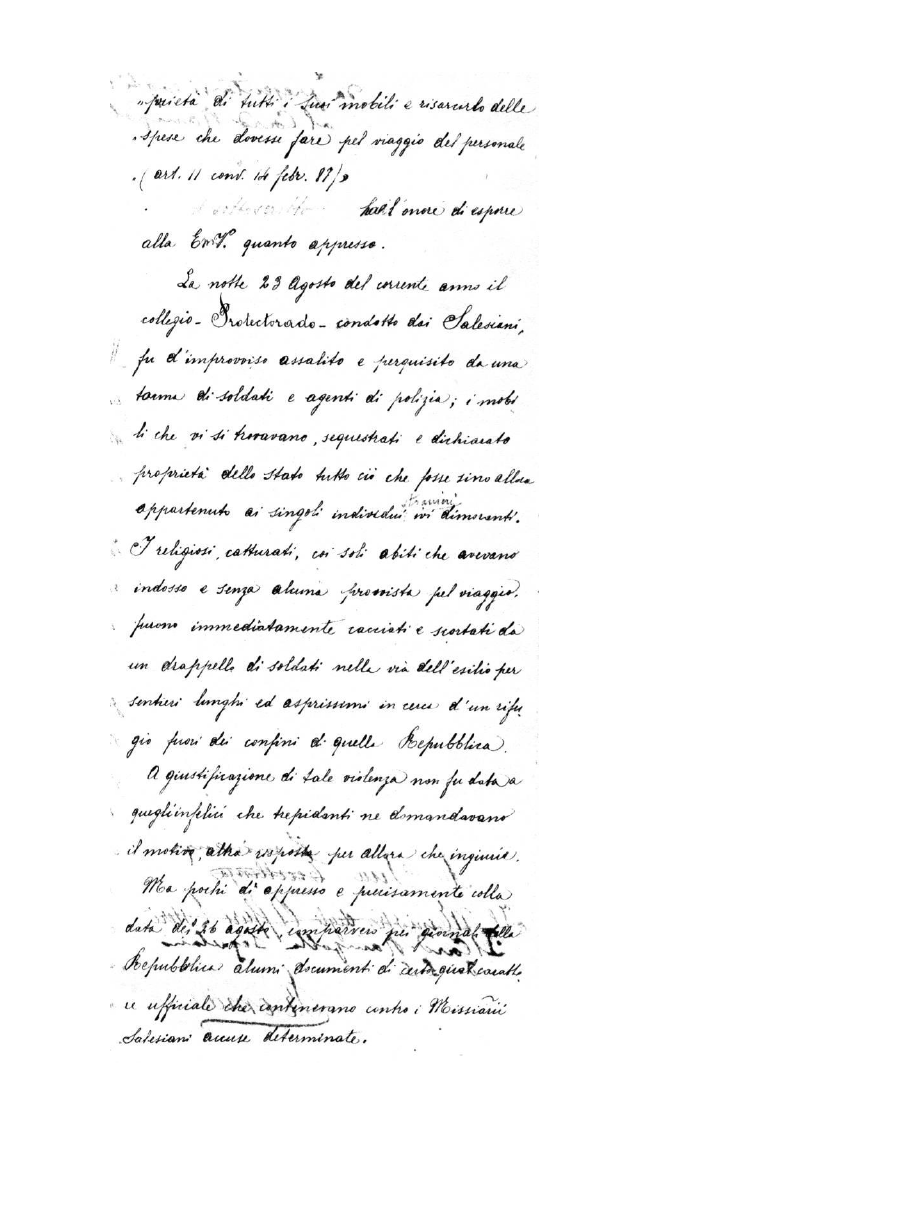 „prietà di tutti i suoi mobili e risarcirlo delle
„spese che dovesse fare pel viaggio del personale
„( art. 11 conv. 14 febr. 87)»
ha l'onore di esporre
alla E. V. quanto appresso.
La notte 23 Agosto del corrente anno il
collegio - Protectorado - condotto dai Salesiani,
fu d'improvviso assalito e perquisito da una
torma di soldati e agenti di polizia; i mobi
li che vi si trovavano, sequestrati e dichiarato
proprietà dello Stato tutto ciò che fosse sino allora
appartenuto ai singoli individui ivi dimoranti.
I religiosi, catturati, coi soli abiti che avevano
indosso e senza alcuna provvista pel viaggio,
furono immediatamente cacciati e scortati da
un drappello di soldati nella via dell'esilio per
sentieri lunghi ed asprissimi in cerca d'un rifu
gio fuori dei confini di quella Repubblica.
A giustificazione di tale violenza non fu data a
quegli infelici che trepidanti ne domandavano
il motivo, altra risposta per allora che ingiurie.
Ma pochi dì appresso e precisamente colla
data dei 26 agosto, comparvero pei giornali della
Repubblica alcuni documenti di certo qual caratte
re ufficiale che contenevano contro i Missionarii
Salesiani accuse determinate.